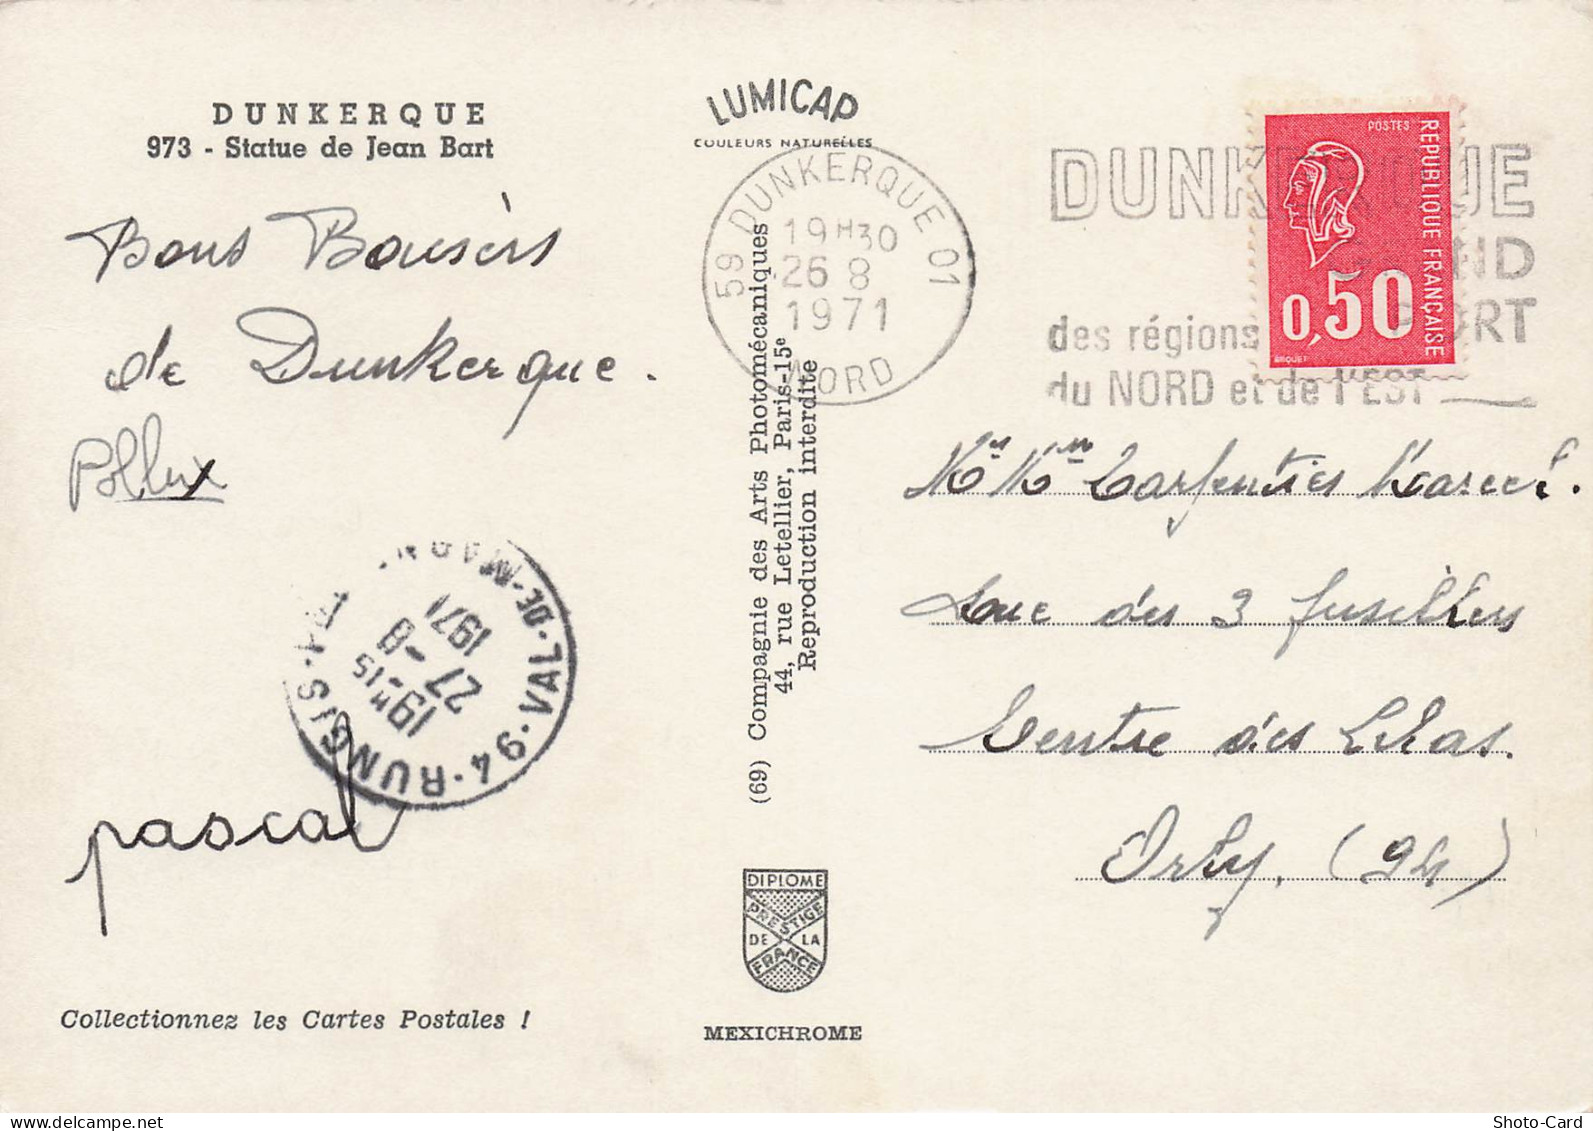 DUNKERQUE
973 - Statue de Jean Bart
Bons Baisers
de Dunkerque.
Pollux
94 - RUNGIS - VAL-DE-MARNE
19H15
27 - 8
1971
pascal
Collectionnez les Cartes Postales !
LUMICAP
COULEURS NATURELLES
59 DUNKERQUE 01
19H30
26 8
1971
NORD
(69) Compagnie des Arts Photomécaniques
44, rue Letellier, Paris-15e
Reproduction interdite
DIPLOME
PRESTIGE
DE LA
FRANCE
MEXICHROME
DUNKERQUE
GRAND
PORT
des régions
du NORD et de l'EST
POSTES
REPUBLIQUE FRANÇAISE
0,50
BROUET
Mr Mme Carpentier Marcel.
Rue des 3 fusillers
Centre des Lilas.
Orly. (94)
Shoto-Card